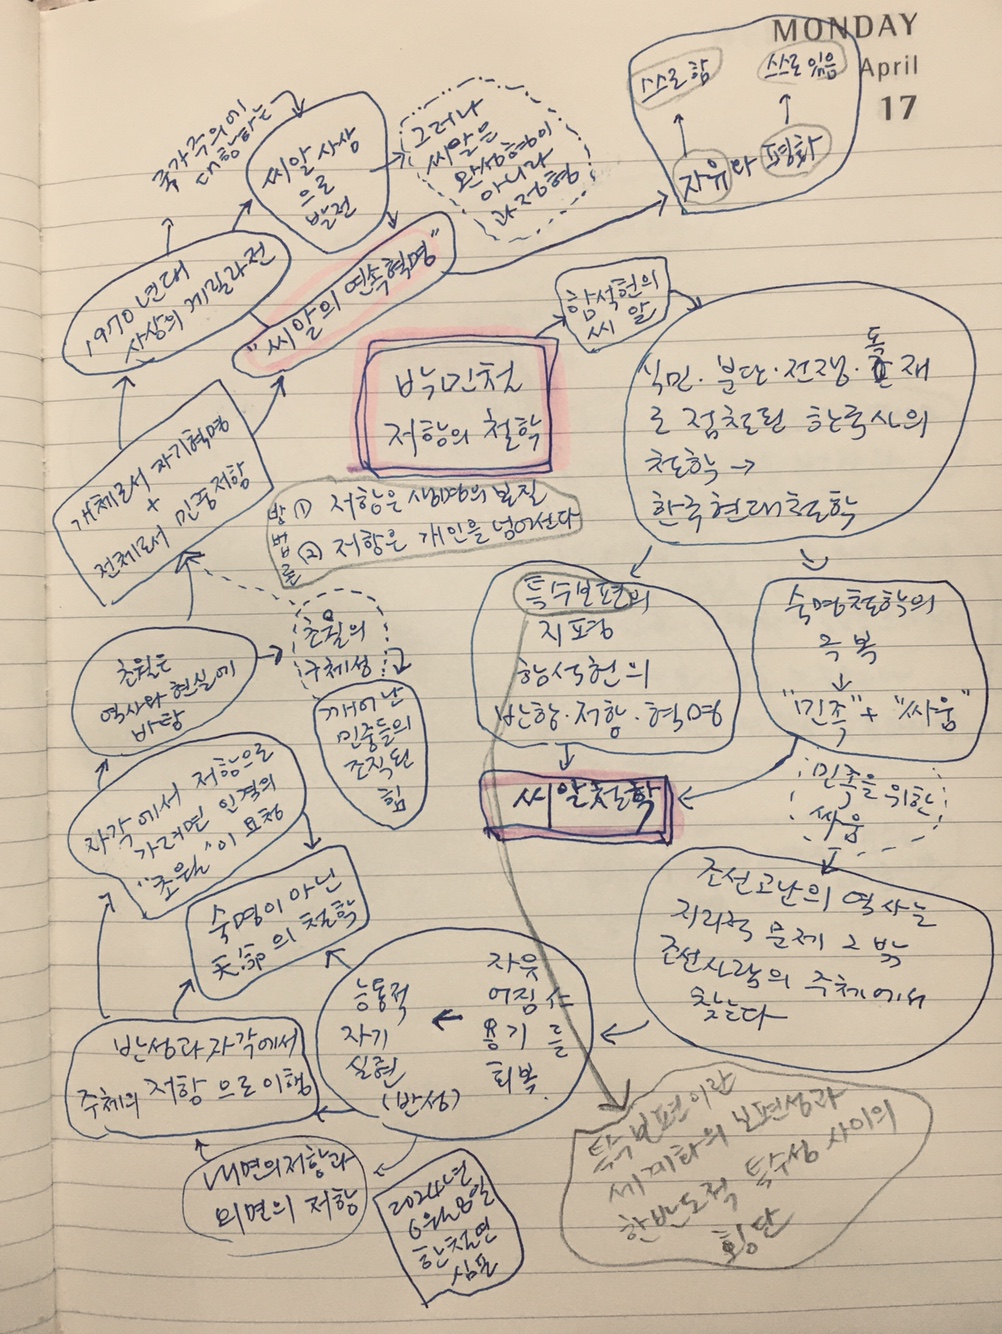 MONDAY
April
17
스스로 함
스스로 있음
자유와 평화
국가주의에
대항하는
씨알 사상
으로
발전
그러나
씨알은
완성형이
아니라
과정형
1970년대
사상의 게릴라전
"씨알의 연속혁명"
함석헌의
씨알
박민철
저항의 철학
식민·분단·전쟁·독재
로 점철된 한국사의
철학 →
한국현대철학
개체로서 자기혁명
+
전체로서 민중저항
방법론
(1) 저항은 생명의 본질
(2) 저항은 개인을 넘어선다
특수보편의
지평
함석헌의
반항·저항·혁명
숙명철학의
극복
"민족" + "싸움"
초월은
역사와 현실에
바탕
초월의
구체성
깨어난
민중들의
조직된
힘
씨알철학
민족을 위한
싸움
자각에서 저항으로
가려면 인격의
"초월"이 요청
숙명이 아닌
天命의 철학
조선고난의 역사는
지리적 문제 그 밖
조선사람의 주체에서
찾는다
능동적
자기
실현
(반성)
자유
어짊
용기 를
회복.
반성과 자각에서
주체의 저항으로 이행
내면의 저항과
외면의 저항
2024년
6월 8일
한철연
심포
특수보편이란
세계화의 보편성과
한반도적 특수성 사이의
횡단